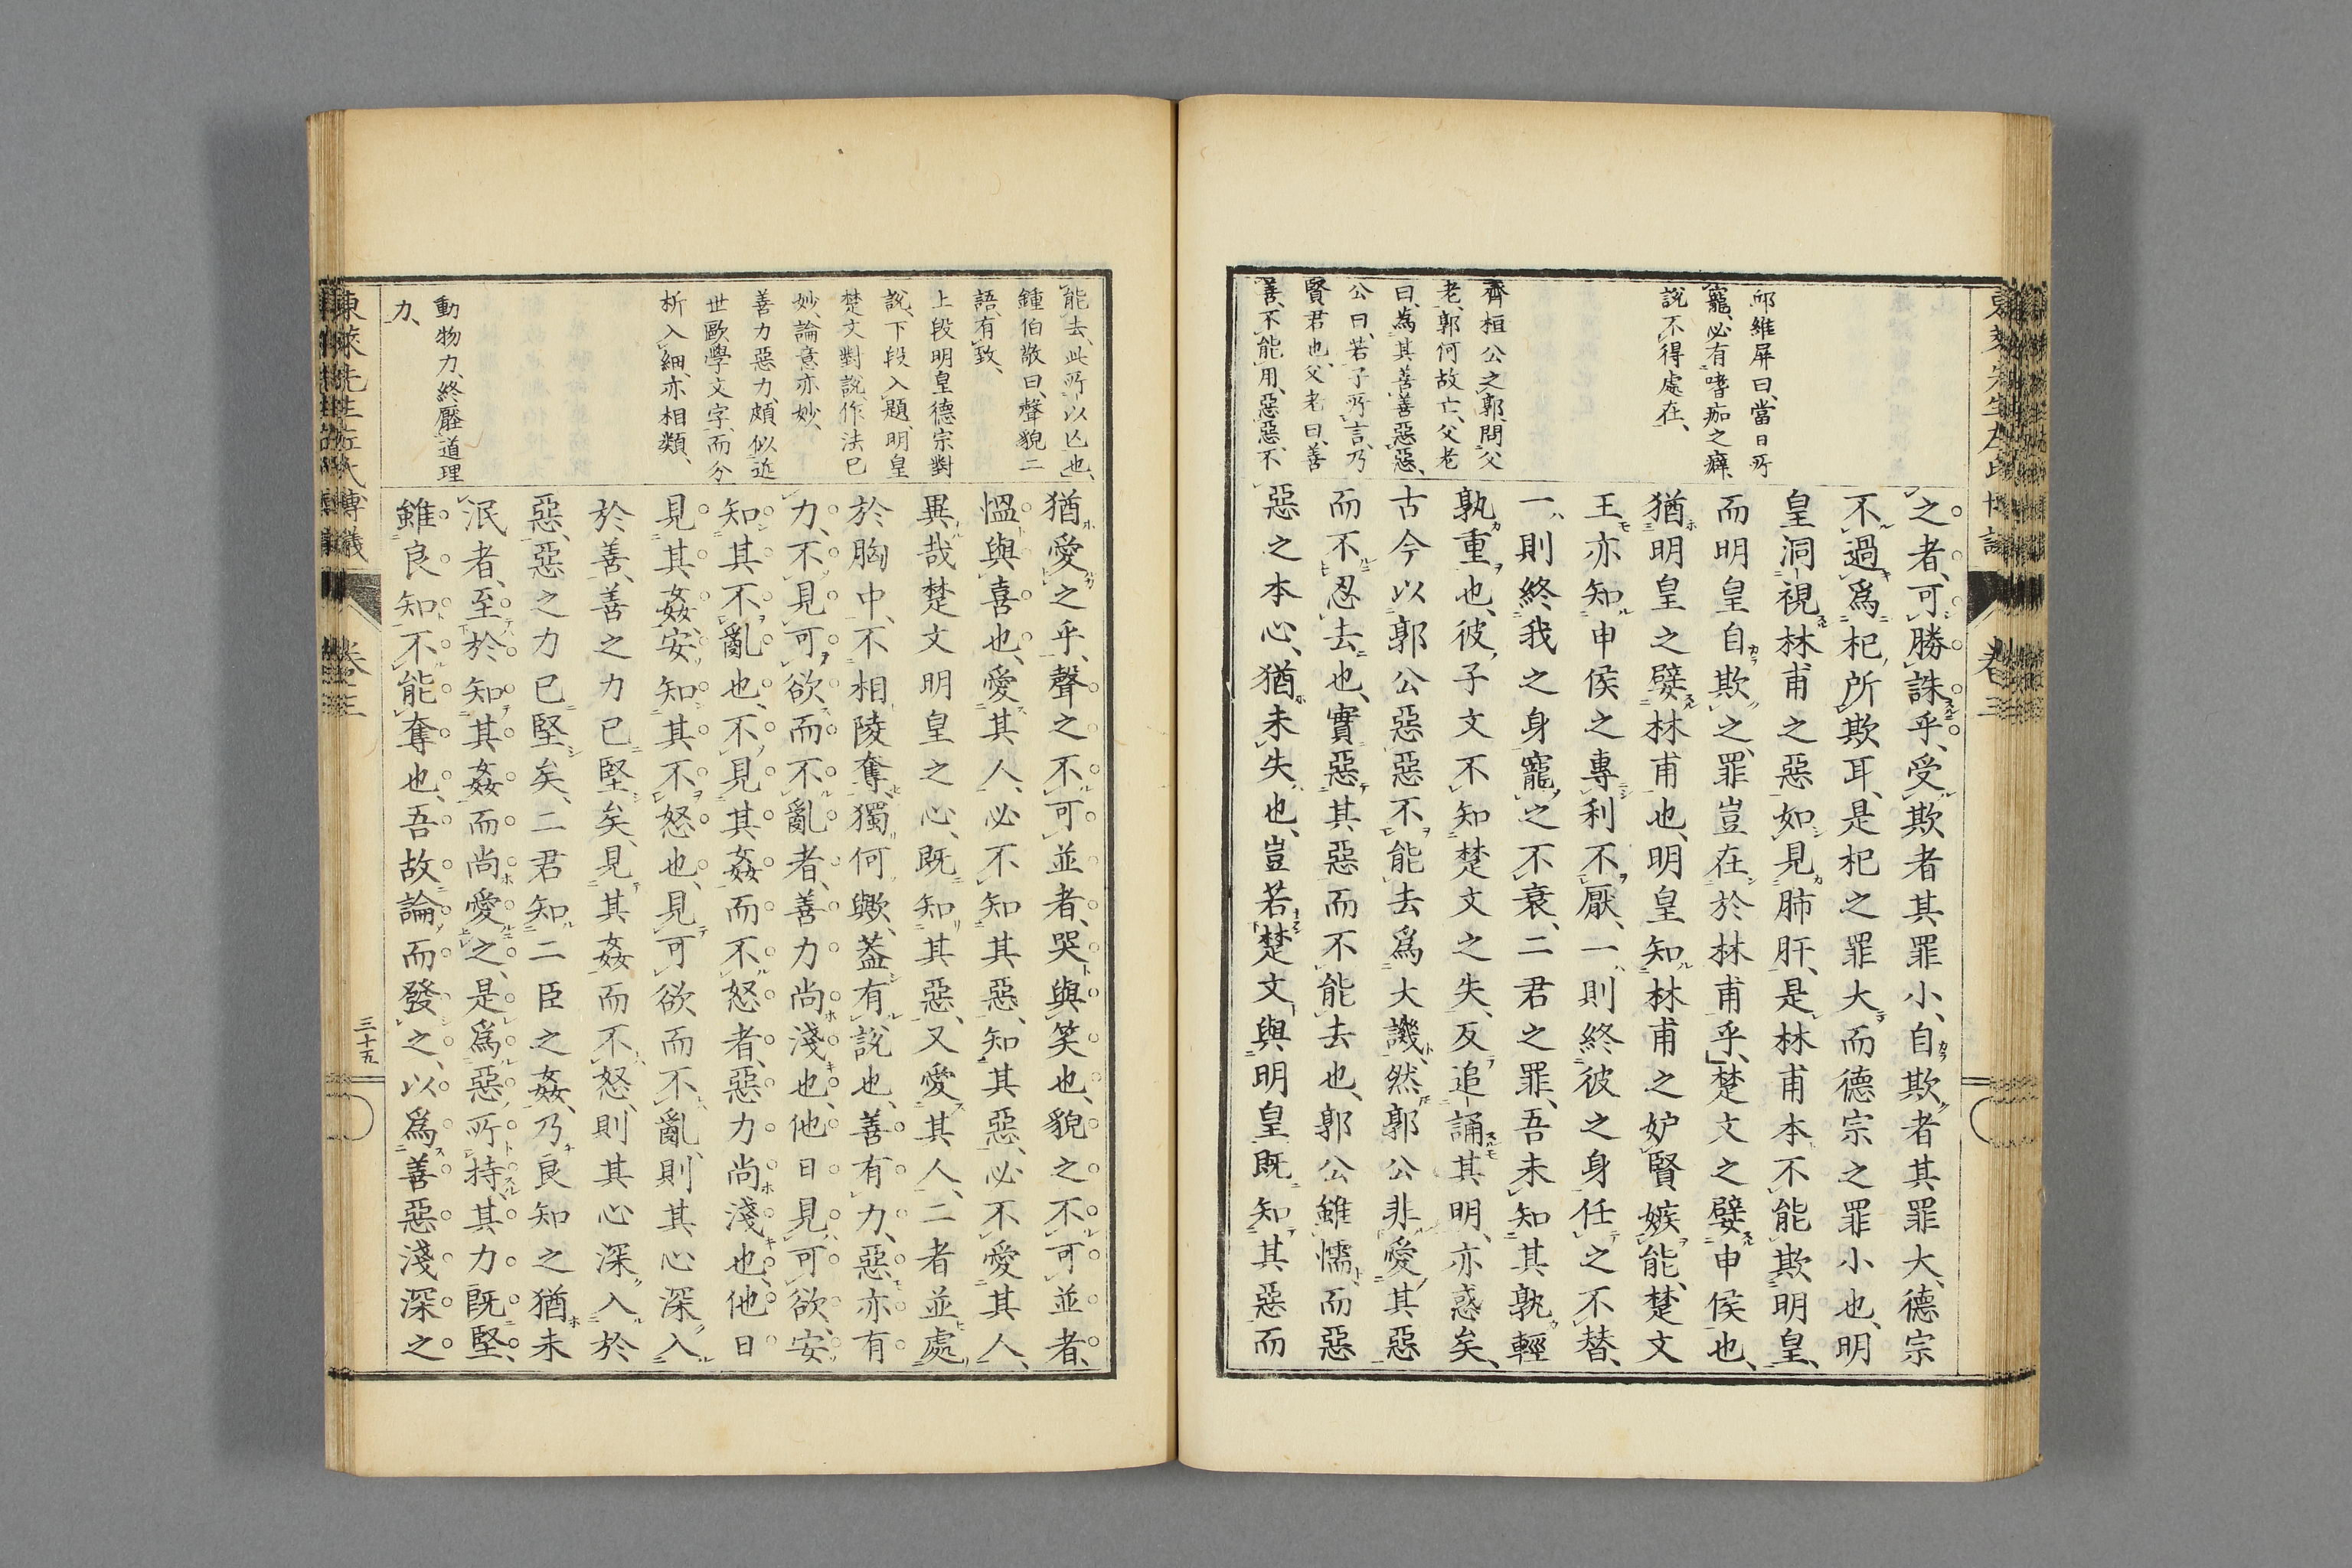 邱維屏曰、當日所
寵、必有嗜痂之癖、
說不得處在、
齊桓公之郭、問父
老、郭何故亡、父老
曰、爲其善善惡惡、
公曰、若子所言、乃
賢君也、父老曰、善
善不能用、惡惡不
之者、可勝誅乎、受欺者其罪小、自欺者其罪大、德宗
不過爲杞所欺耳、是杞之罪大而德宗之罪小也、明
皇洞視林甫之惡如見肺肝、是林甫本不能欺明皇、
而明皇自欺之、罪豈在於林甫乎、楚文之嬖申侯也、
猶明皇之嬖林甫也、明皇知林甫之妒賢嫉能、楚文
王亦知申侯之專利不厭、一則終彼之身任之不替、
一則終我之身寵之不衰、二君之罪、吾未知其孰輕
孰重也、彼子文不知楚文之失、反追誦其明、亦惑矣、
古今以郭公惡惡不能去爲大譏、然郭公非愛其惡
而不忍去也、實惡其惡而不能去也、郭公雖懦、而惡
惡之本心、猶未失也、豈若楚文與明皇既知其惡而
能去、此所以亡也、
鍾伯敬曰、聲貌二
語、有致、
上段明皇德宗對
說、下段入題、明皇
楚文對說、作法已
妙、論意亦妙、
善力惡力、頗似近
世歐學文字、而分
析入細、亦相類、
動物力、終壓道理
力、
猶愛之乎、聲之不可並者、哭與笑也、貌之不可並者、
慍與喜也、愛其人、必不知其惡、知其惡、必不愛其人、
異哉楚文明皇之心、既知其惡、又愛其人、二者並處
於胸中、不相陵奪、獨何歟、蓋有說也、善有力、惡亦有
力、不見可欲而不亂者、善力尚淺也、他日見可欲、安
知其不亂也、不見其姦而不怒者、惡力尚淺也、他日
見其姦、安知其不怒也、見可欲而不亂、則其心深入
於善、善之力已堅矣、見其姦而不怒、則其心深入於
惡、惡之力已堅矣、二君知二臣之姦、乃良知之猶未
泯者、至於知其姦而尚愛之、是爲惡所持、其力既堅、
雖良知不能奪也、吾故論而發之、以爲善惡淺深之
卷三
三十五